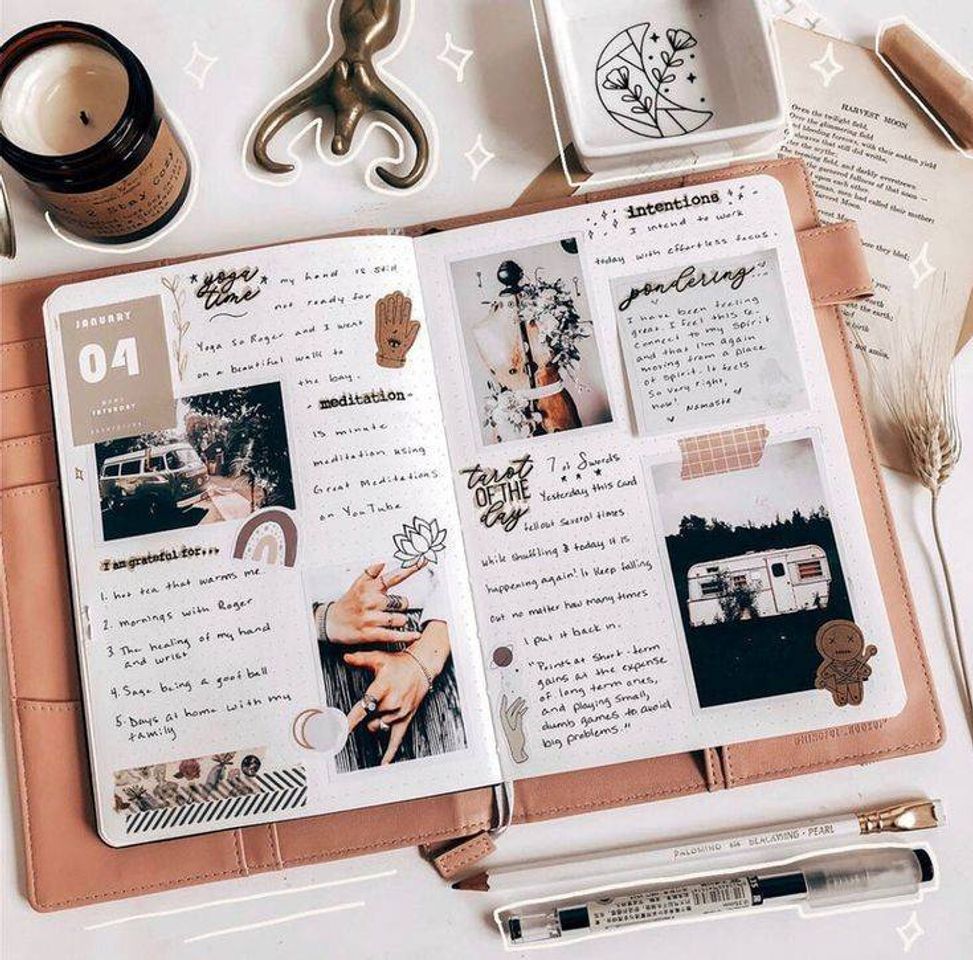 2 Stay Cozy
HARVEST MOON
Over the twilight field,
Over the glimmering field
JANUARY
04
SATURDAY
yoga
time
my hand is still
not ready for
Yoga so Roger and I went
on a beautiful walk to
the bay.
meditation
15 minute
meditation using
Great Meditations
on YouTube
I am grateful for...
1. hot tea that warms me
2. mornings with Roger
3. The healing of my hand
and wrist
4. Sage being a goof ball
5. Days at home with my
family
intentions
I intend to work
today with effortless focus.
pondering...
I have been feeling
great. I feel this re-
connect to my spirit
and that I'm again
moving from a place
of spirit. It feels
so very right,
now! Namaste
tarot
OF THE
day
7 of Swords
Yesterday this card
fell out several times
while shuffling & today it is
happening again! It keep falling
out no matter how many times
I put it back in.
"Points at short-term
gains at the expense
of long term ones,
and playing small,
dumb games to avoid
big problems."
PALOMINO BLACKWING · PEARL